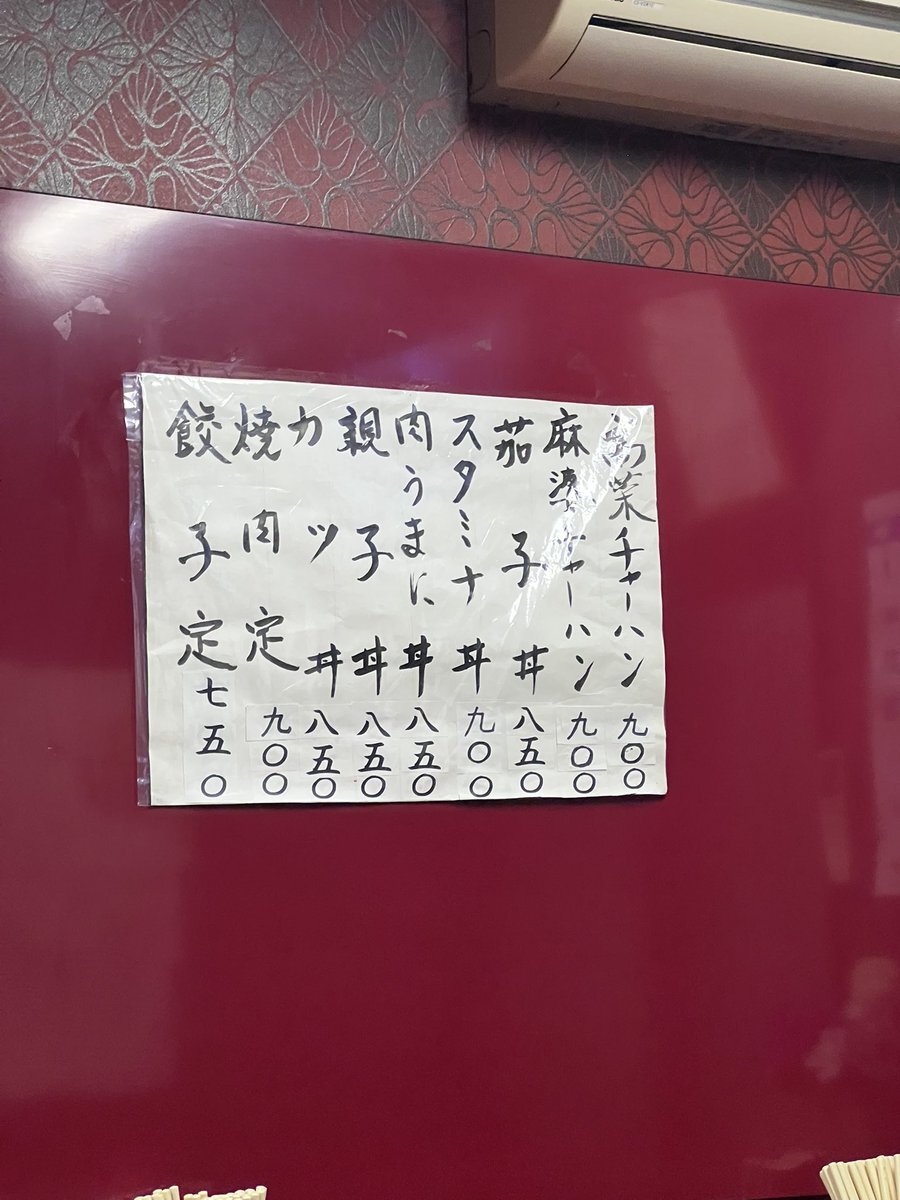 栄チャーハン 九〇〇
麻婆チャーハン 九〇〇
茄子丼 八五〇
スタミナ丼 九〇〇
肉うまに丼 八五〇
親子丼 八五〇
カツ丼 八五〇
焼肉定 九〇〇
餃子定 七五〇